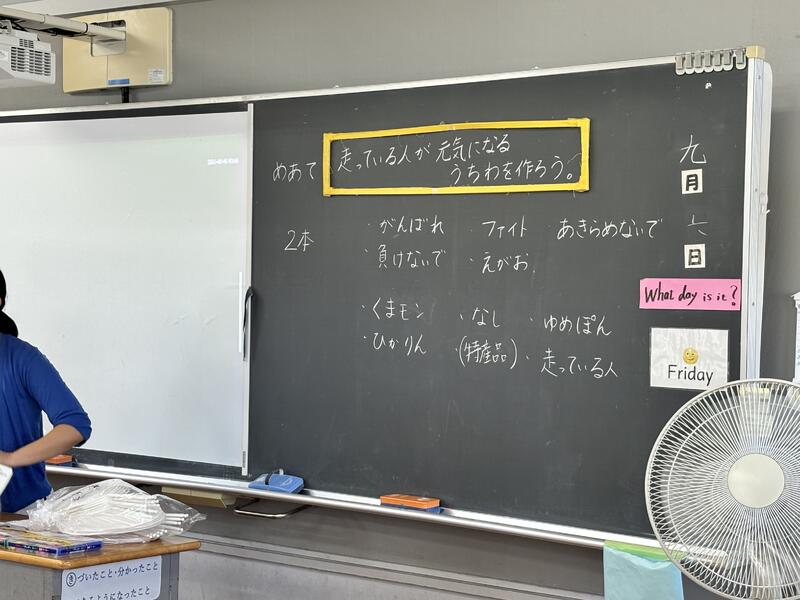 めあて
走っている人が元気になる
うちわを作ろう。
2本
・がんばれ ・ファイト あきらめないで
・負けないで ・えがお
・くまモン ・なし ・ゆめぽん
・ひかりん ・(特産品) ・走っている人
九
月
六
日
What day is it?
Friday
きづいたこと・分かったこと
るようになったこと